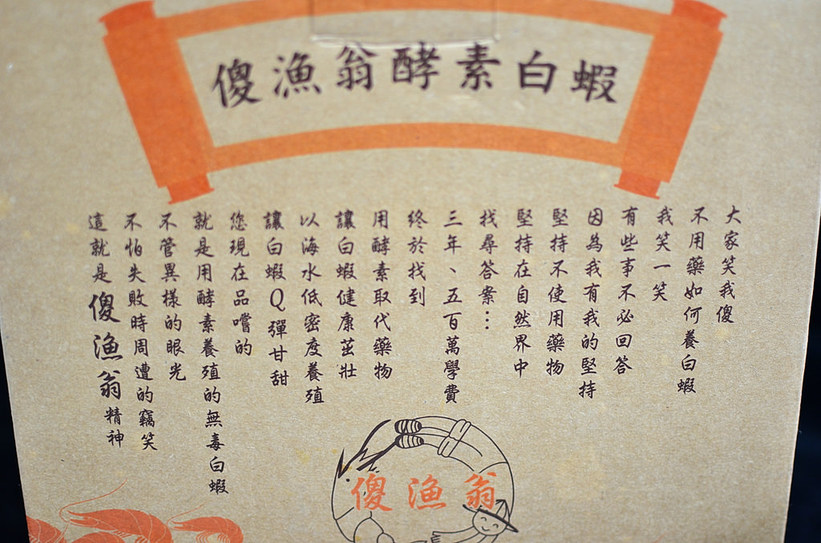 傻漁翁酵素白蝦
大家笑我傻
不用藥如何養白蝦
我笑一笑
有些事不必回答
因為我有我的堅持
堅持不使用藥物
堅持在自然界中
找尋答案⋯
三年、五百萬學費
終於找到
用酵素取代藥物
讓白蝦健康茁壯
以海水低密度養殖
讓白蝦Q彈甘甜
您現在品嚐的
就是用酵素養殖的無毒白蝦
不管異樣的眼光
不怕失敗時周遭的竊笑
這就是傻漁翁精神
傻漁翁